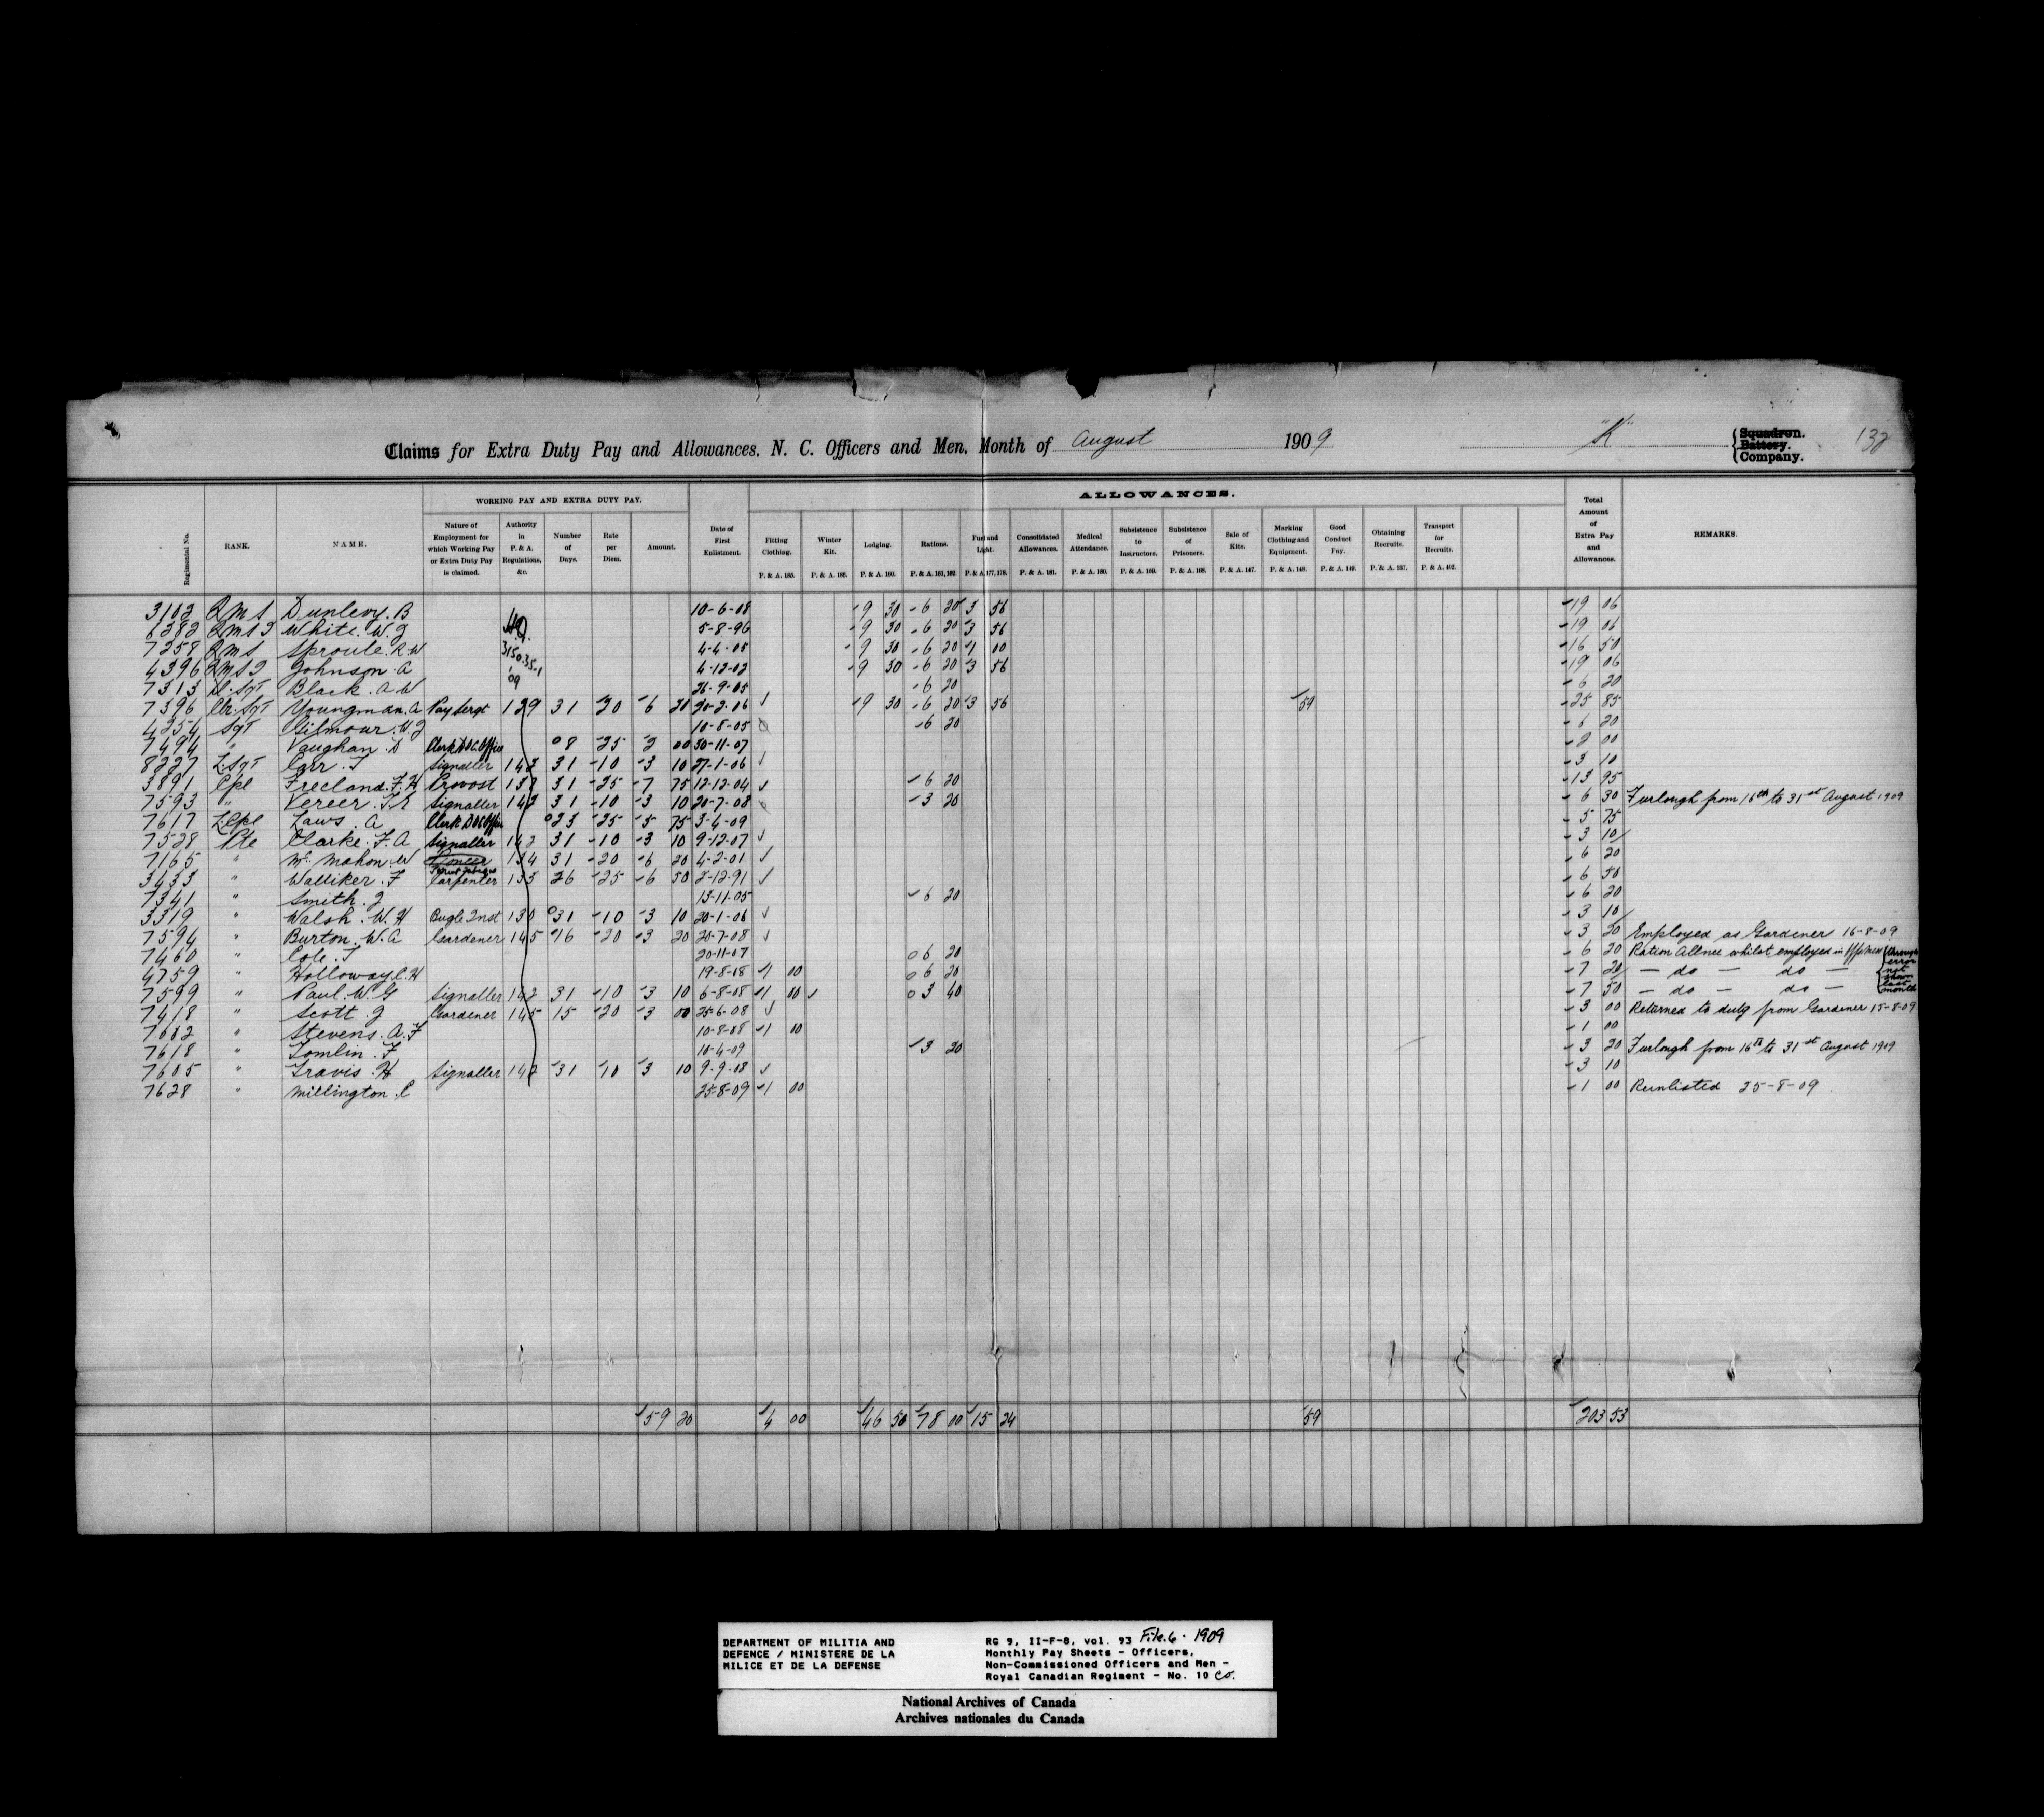 Claims for Extra Duty Pay and Allowances. N. C. Officers and Men, Month of August 1909 "K" Squadron. Battery. Company. 132
WORKING PAY AND EXTRA DUTY PAY. ALLOWANCES.
Regimental No. RANK. NAME. Nature of Employment for which Working Pay or Extra Duty Pay is claimed. Authority in P. & A. Regulations, &c. Number of Days. Rate per Diem. Amount. Date of First Enlistment. Fitting Clothing. P. & A. 185. Winter Kit. P. & A. 186. Lodging. P. & A. 160. Rations. P. & A. 161, 162. Fuel and Light. P. & A. 177, 178. Consolidated Allowances. P. & A. 181. Medical Attendance. P. & A. 180. Subsistence to Instructors. P. & A. 159. Subsistence of Prisoners. P. & A. 168. Sale of Kits. P. & A. 147. Marking Clothing and Equipment. P. & A. 148. Good Conduct Pay. P. & A. 149. Obtaining Recruits. P. & A. 337. Transport for Recruits. P. & A. 402. Total Amount of Extra Pay and Allowances. REMARKS.
3102 QMS Dunlevy. B 10-6-08 9 30 6 20 3 56 19 06
6382 QMSI White. W. J HQ. 5-8-96 9 30 6 20 3 56 19 06
7258 QMS Sproule. R W 3150-35-1 4-4-05 9 30 6 20 1 00 16 50
4396 QMSI Johnson. A 09 4-12-02 9 30 6 20 3 56 19 06
7313 Black. A W 26-9-05 6 20 6 20
7396 Clr. Sgt Youngman. A Pay Sergt 129 31 20 6 20 20-2-06 9 30 6 20 3 56 59 25 85
4254 Sgt Gilmour. W. J 10-8-05 6 20 6 20
7494 " Vaughan. D Clerk DOC Office 8 25 2 00 30-11-07 2 00
8227 L. Sgt Carr. T Signaller 142 31 10 3 10 27-1-06 3 10
3891 Cpl Freeland. F. H Provost 137 31 25 7 75 12-12-04 6 20 13 95
7593 " Vereer. T. E Signaller 142 31 10 3 10 20-7-08 3 20 6 30 Furlough from 16th to 31st August 1909
7617 L. Cpl Laws. A Clerk DOC Office 23 25 5 75 3-4-09 5 75
7528 Pte Clarke. F. A Signaller 142 31 10 3 10 9-12-07 3 10
7165 " McMahon. W Pioneer 134 31 20 6 20 4-2-01 6 20
3433 " Walliker. F Carpenter 135 26 25 6 50 2-12-91 6 50
7341 " Smith. J 13-11-05 6 20 6 20
3319 " Walsh. W. H Bugle Inst 130 31 10 3 10 20-1-06 3 10
7594 " Burton. W. A Gardener 145 16 20 3 20 20-7-08 3 20 Employed as Gardener 16-8-09
7460 " Cole. T 20-11-07 6 20 6 20 Ration Allnce whilst employed in Off. Mess { through error not shown last month
4759 " Holloway C. H 19-8-08 1 00 6 20 7 20 — do — do —
7599 " Paul. W. G Signaller 142 31 10 3 10 6-8-08 1 00 3 40 7 50 — do — do —
7418 " Scott. J Gardener 145 15 20 3 00 25-6-08 3 00 Returned to duty from Gardener 15-8-09
7602 " Stevens. A. F 10-8-08 1 00 1 00
7618 " Tomlin. F 10-4-09 3 20 3 20 Furlough from 16th to 31st August 1909
7605 " Travis. H Signaller 142 31 10 3 10 9-9-08 3 10
7628 " Millington. C 25-8-09 1 00 1 00 Reinlisted 25-8-09
59 20 4 00 46 50 78 00 15 24 59 203 53
DEPARTMENT OF MILITIA AND DEFENCE / MINISTERE DE LA MILICE ET DE LA DEFENSE
RG 9, II-F-8, vol. 93 File. 6. 1909
Monthly Pay Sheets - Officers,
Non-Commissioned Officers and Men -
Royal Canadian Regiment - No. 10 Co.
National Archives of Canada
Archives nationales du Canada